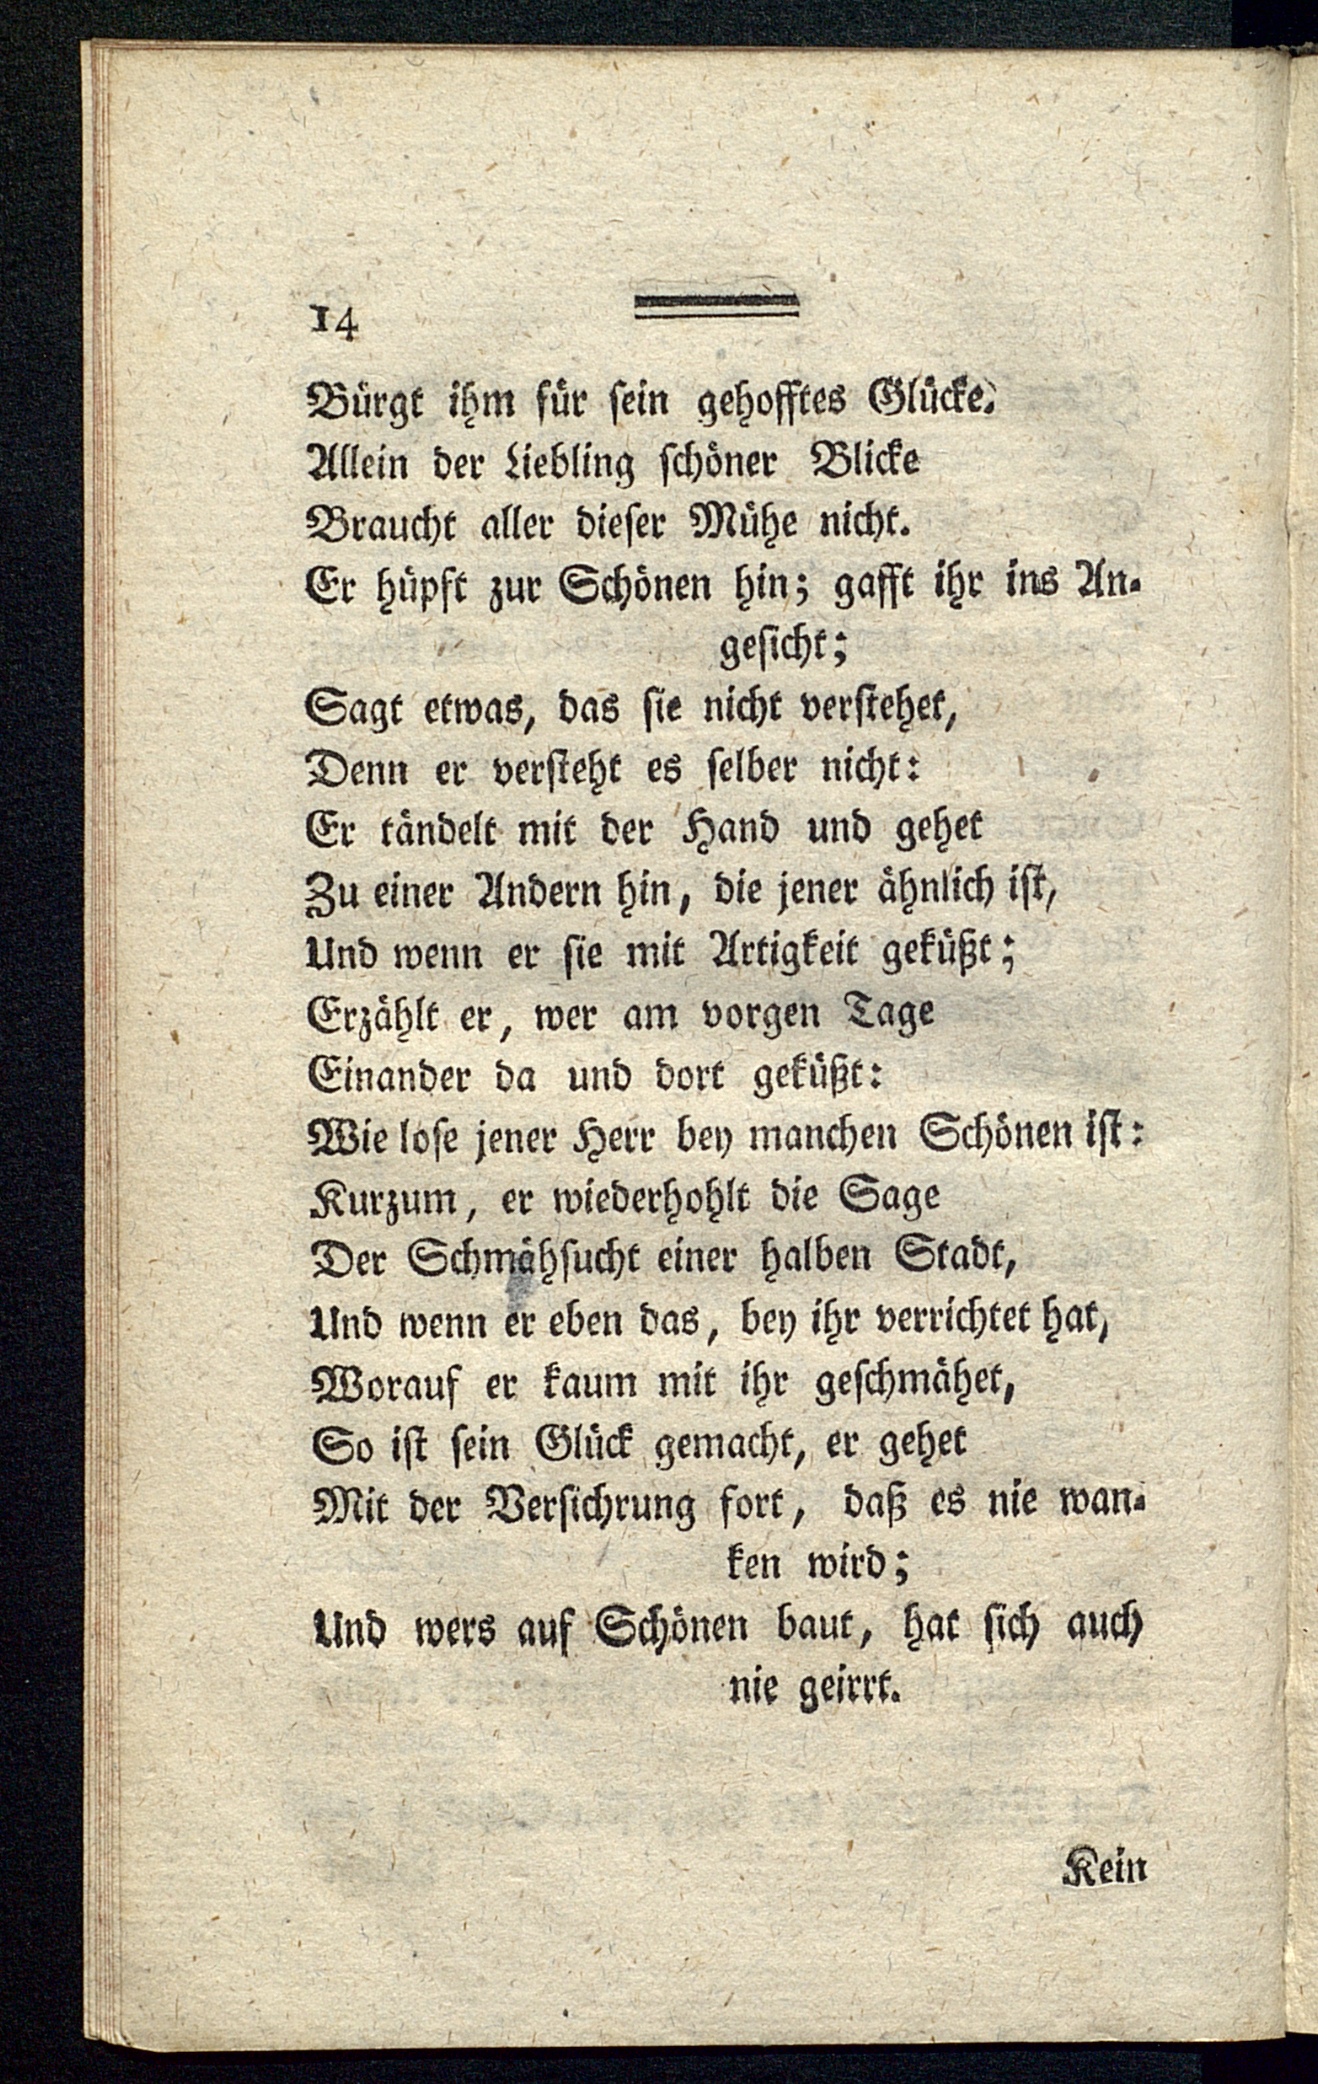 14
Bürgt ihm für sein gehofftes Glücke.
Allein der Liebling schöner Blicke
Braucht aller dieser Mühe nicht.
Er hüpft zur Schönen hin; gafft ihr ins An-
gesicht;
Sagt etwas, das sie nicht verstehet,
Denn er versteht es selber nicht:
Er tändelt mit der Hand und gehet
Zu einer Andern hin, die jener ähnlich ist,
Und wenn er sie mit Artigkeit geküßt;
Erzählt er, wer am vorgen Tage
Einander da und dort geküßt:
Wie lose jener Herr bey manchen Schönen ist:
Kurzum, er wiederhohlt die Sage
Der Schmähsucht einer halben Stadt,
Und wenn er eben das, bey ihr verrichtet hat,
Worauf er kaum mit ihr geschmähet,
So ist sein Glück gemacht, er gehet
Mit der Versichrung fort, daß es nie wan-
ken wird;
Und wers auf Schönen baut, hat sich auch
nie geirrt.
Kein